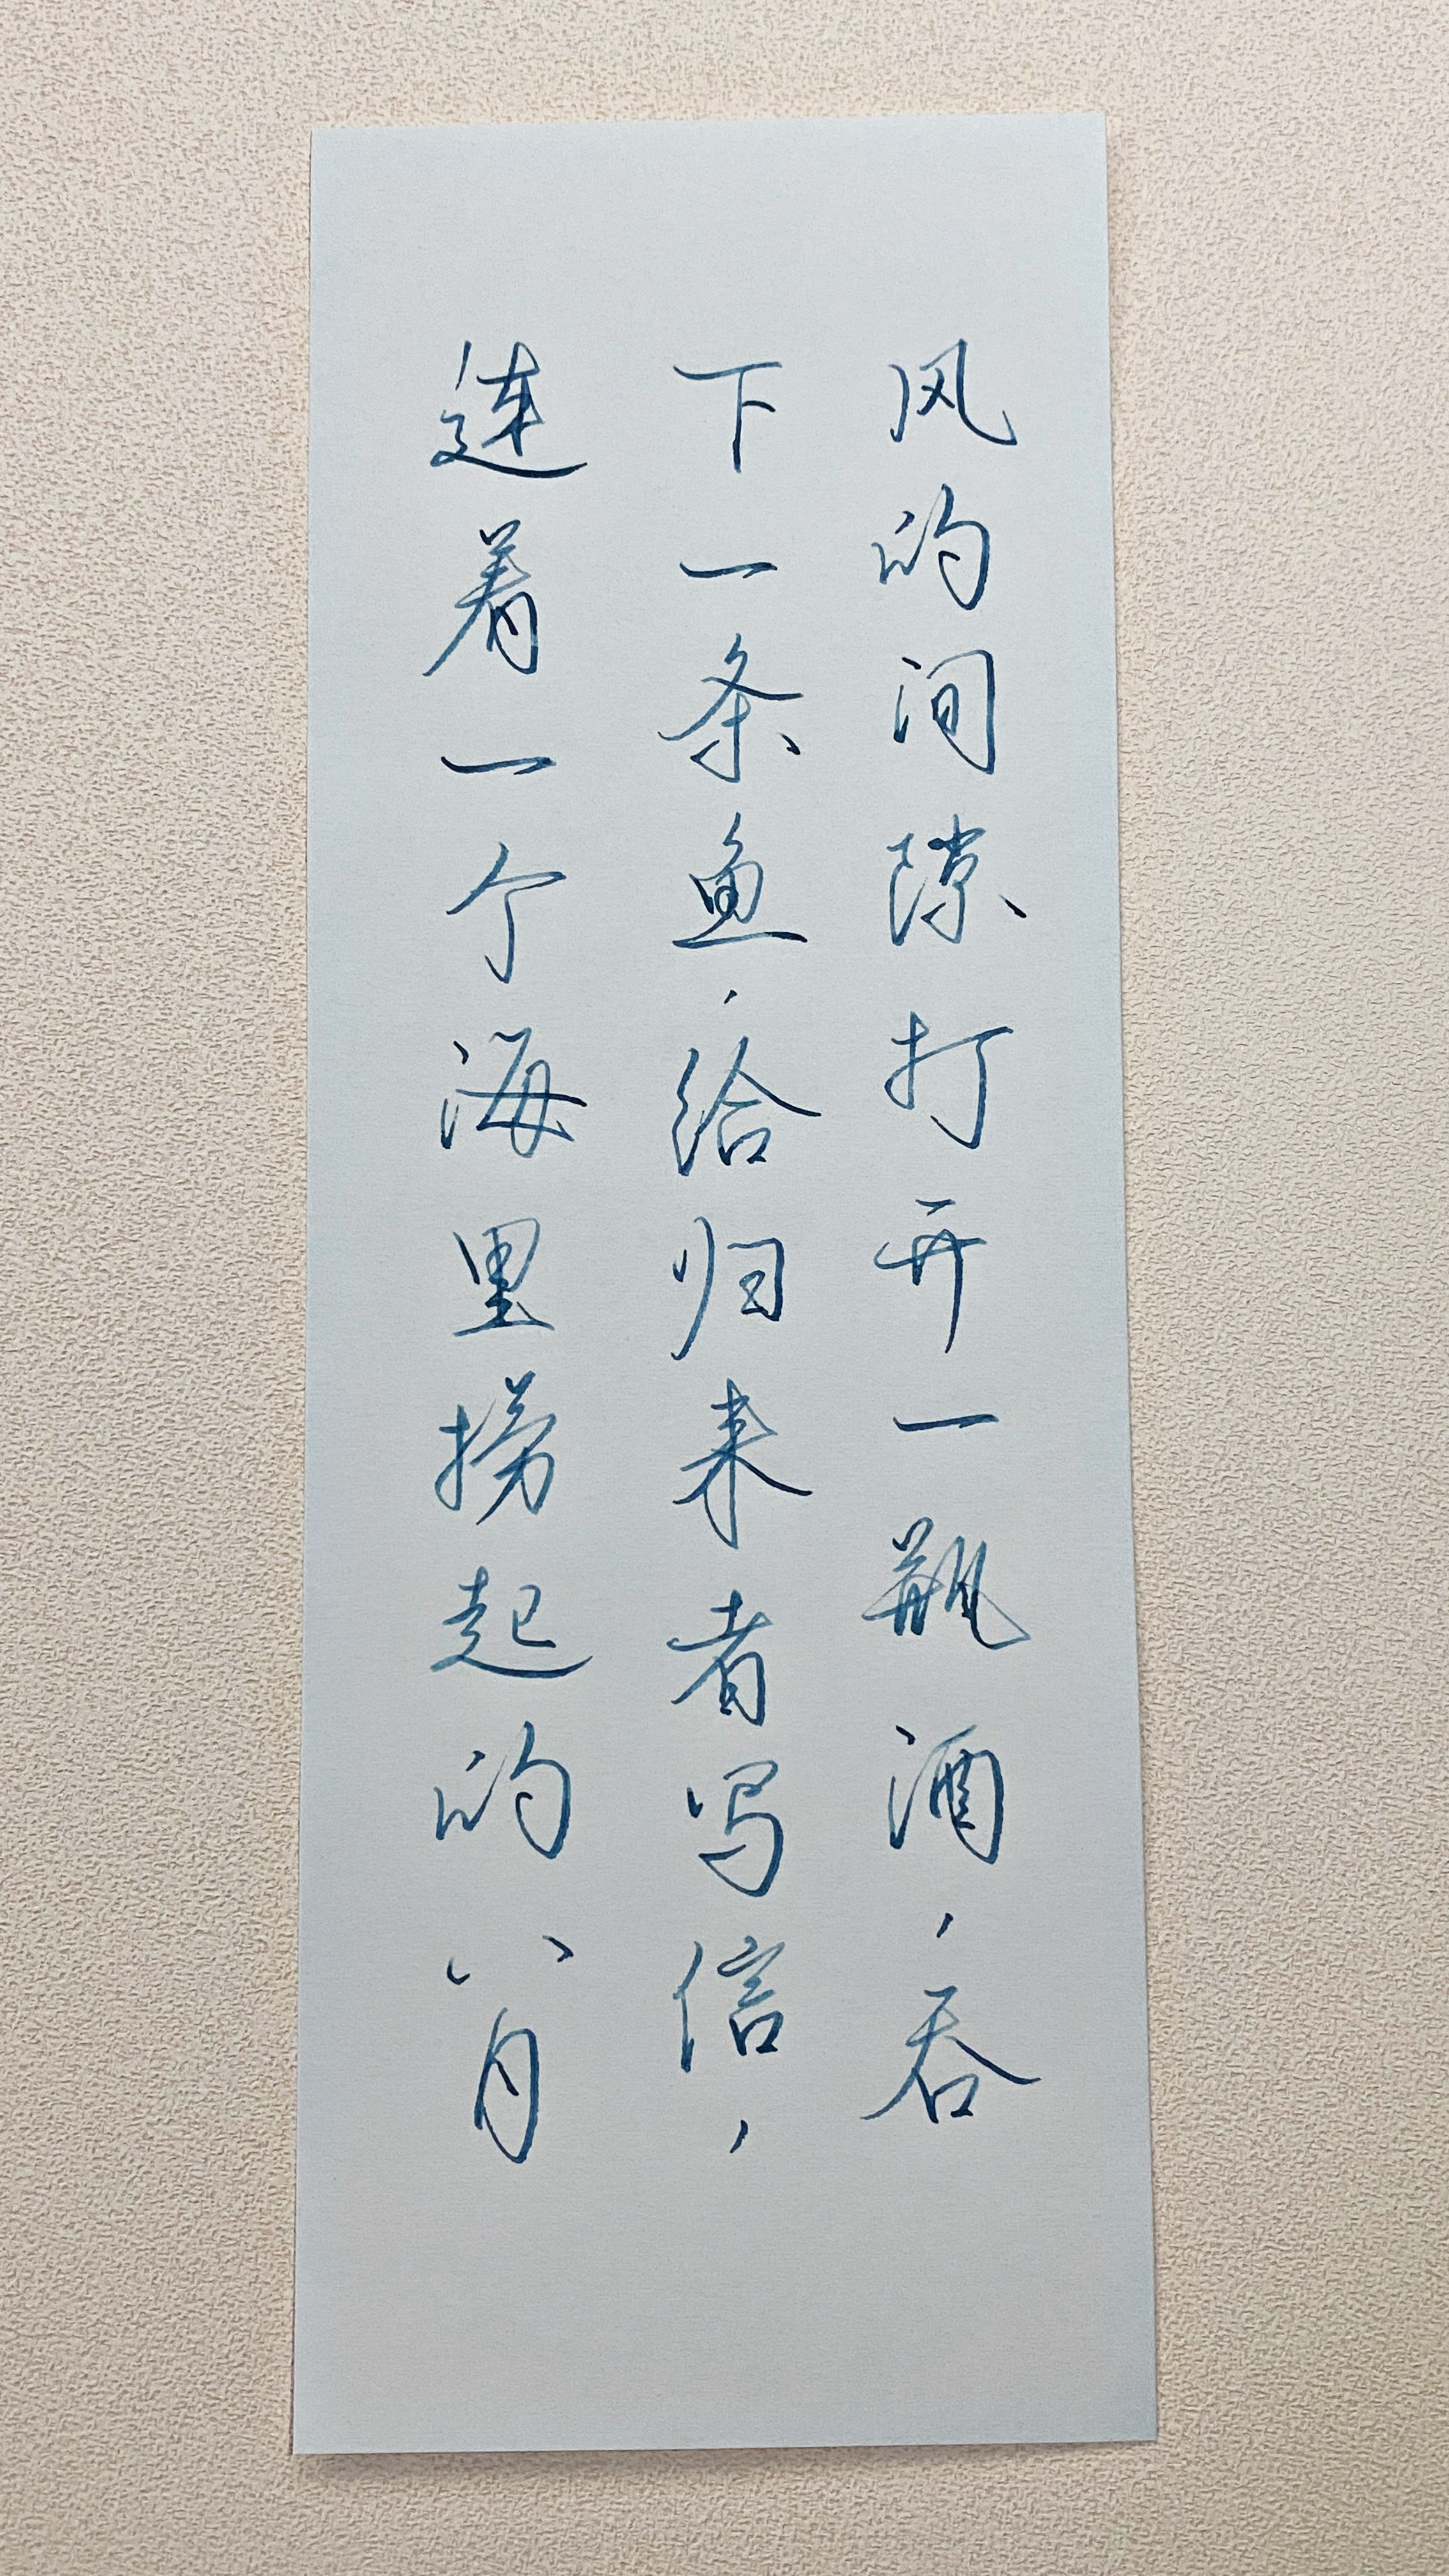 风的间隙打开一瓶酒，吞
下一条鱼，给归来者写信，
连着一个海里捞起的八月